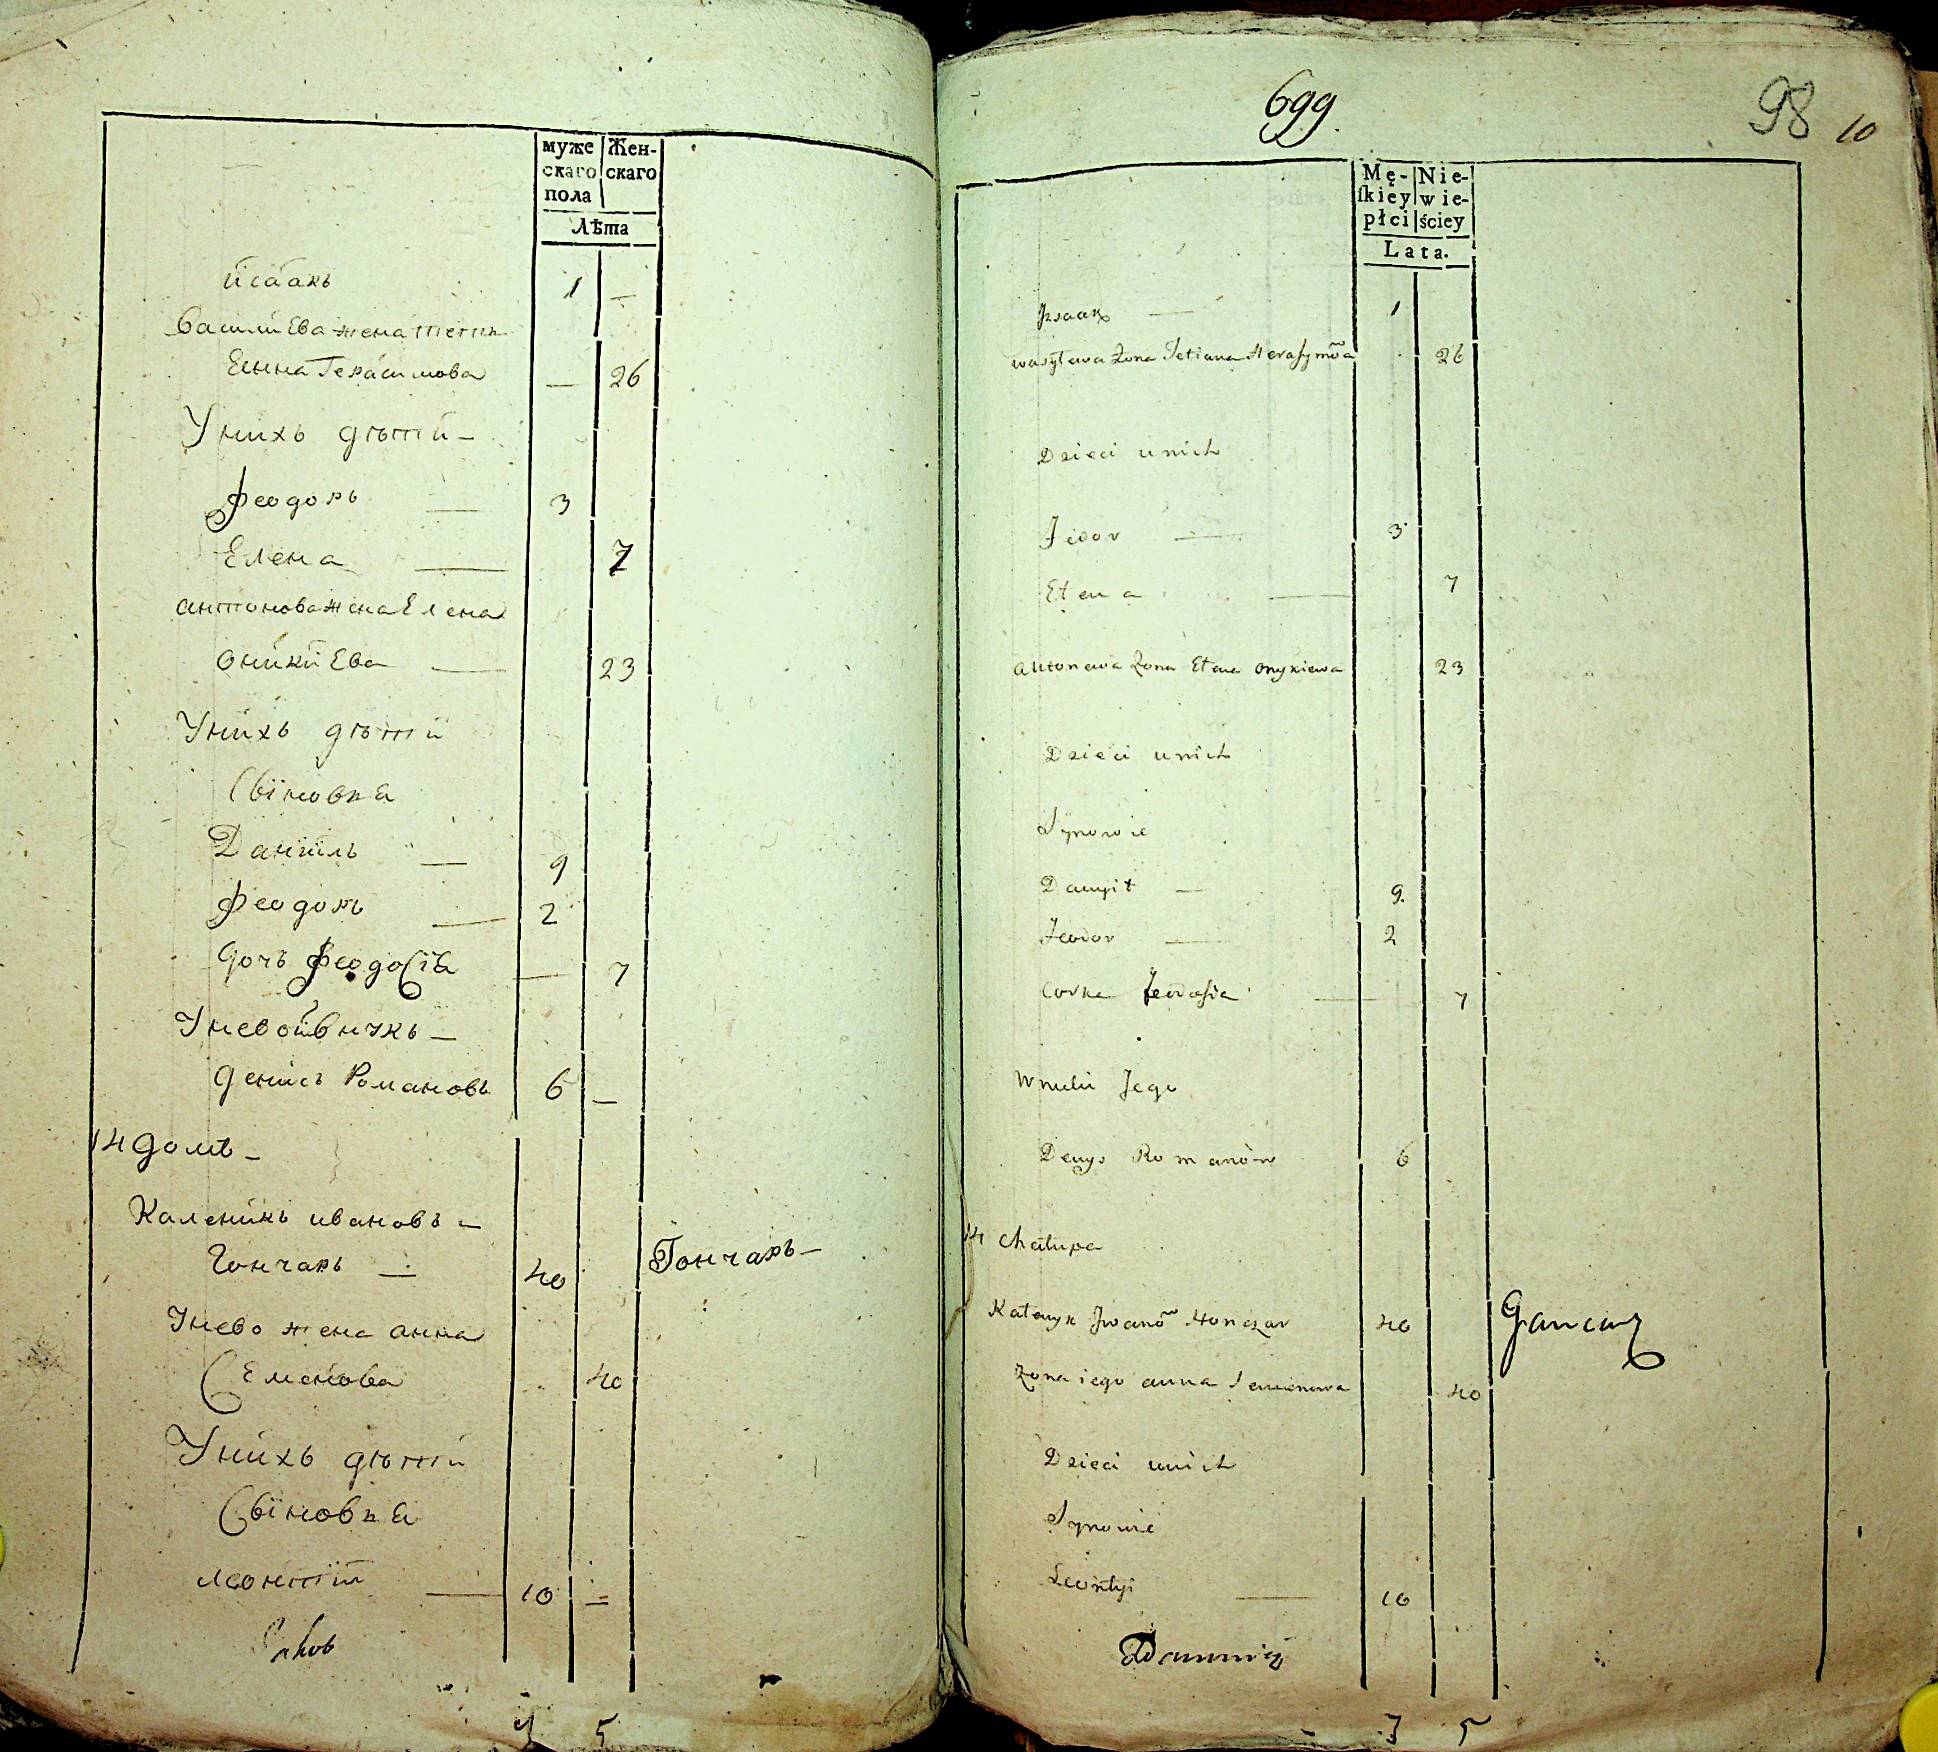 муже Жен-
скаго скаго
пола
Лѣта
Исаакъ 1 —
Василиева жена тетп
Еянна Герасимова — 26
Унихъ дѣтй —
Феодоръ — 3
Елена — 7
антонова жена Елена
Оникиева — 23
Унихъ дѣтй
Сыновья
Данилъ — 9
Феодоръ — 2
дочь Феодосiя — 7
Унево внукъ —
денисъ Романовъ 6 —
14 домъ —
Каленикъ ивановъ —
Гончаръ — 40 Гончаръ —
Унево жена анна
Семенова 40
Унихъ дѣтй
Сыновья
леонтiй — 10 —
Яков
7 5
699 98 10
Mę- Nie-
ſkiey wie-
płci ściey
Lata.
Jzaak — 1
wasylewa Zona Tetiana Herasymowa 26
Dzieci unich
Fedor — 3
Elena — 7
antonowa Zona Elena onykiewa 23
Dzieci unich
Synowie
Danyił — 9.
Feodor — 2
Corka feodosia — 7
Wnuku Jego
Denys Romanów 6
14 Chałupa
Kalenyk Jwano Honczar 40 Gancarz
Zona iego anna Semenowa 40
Dzieci unich
Synowie
Leontyi — 10
7 5